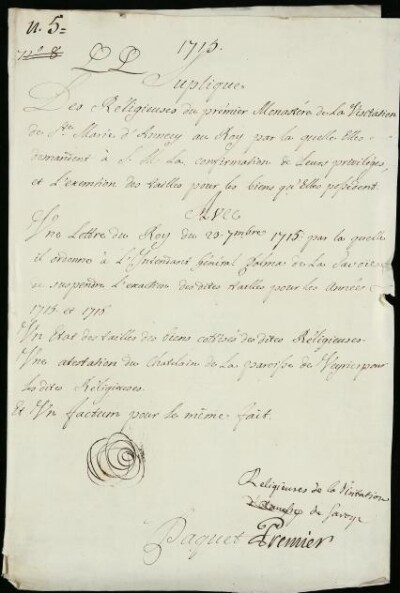 n. 5=
n.º 8
PP 1715.
Suplique
Des Religieuses du prémier Monastére de La Visitation
de Ste Marie d'Annecy au Roy par la quelle Elles
demandent à S. M. La confirmation de Leurs priviléges,
et L'exemtion des tailles pour les biens qu'Elles possédent.
Avec
Une Lettre du Roy du 29 7mbre 1715 par la quelle
il ordonne à L'Intendant Général de La Savoie
de suspendre L'exaction des dites tailles pour les Années
1715 et 1716
Un Etat des tailles des biens des dites Réligieuses.
Une atestation du Chatelain de La paroisse de Veyrier pour
les dites Réligieuses.
Et Un factum pour le même fait.
Religieuses de la Visitation
d'Annecy de Savoye
Paquet Premier